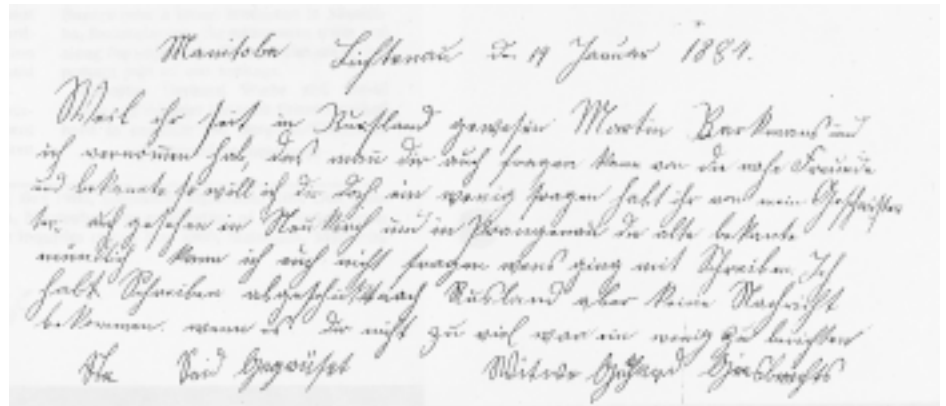 Manitoba Lichtenau d. 19 Januar 1884.
Weil ihr seit in Russland gewesen Martin Barkmans und
ich vernommen hab, das man dir auch fragen kann von die nahe Freunde
und bekannte so will ich dir doch ein wenig fragen habt ihr von mein Geschwister
auch gesehen in Neukirch und in Prangenau die alte bekante
mündlich kann ich euch nicht fragen wens ging mit Schreiben. Ich
habe Schreiben abgeschickt nach Rusland aber keine Nachricht
bekommen. wenn es dir nicht zu viel war ein wenig zu berichten
Seid Gegrüset Witwe Gerhard Giesbrechts